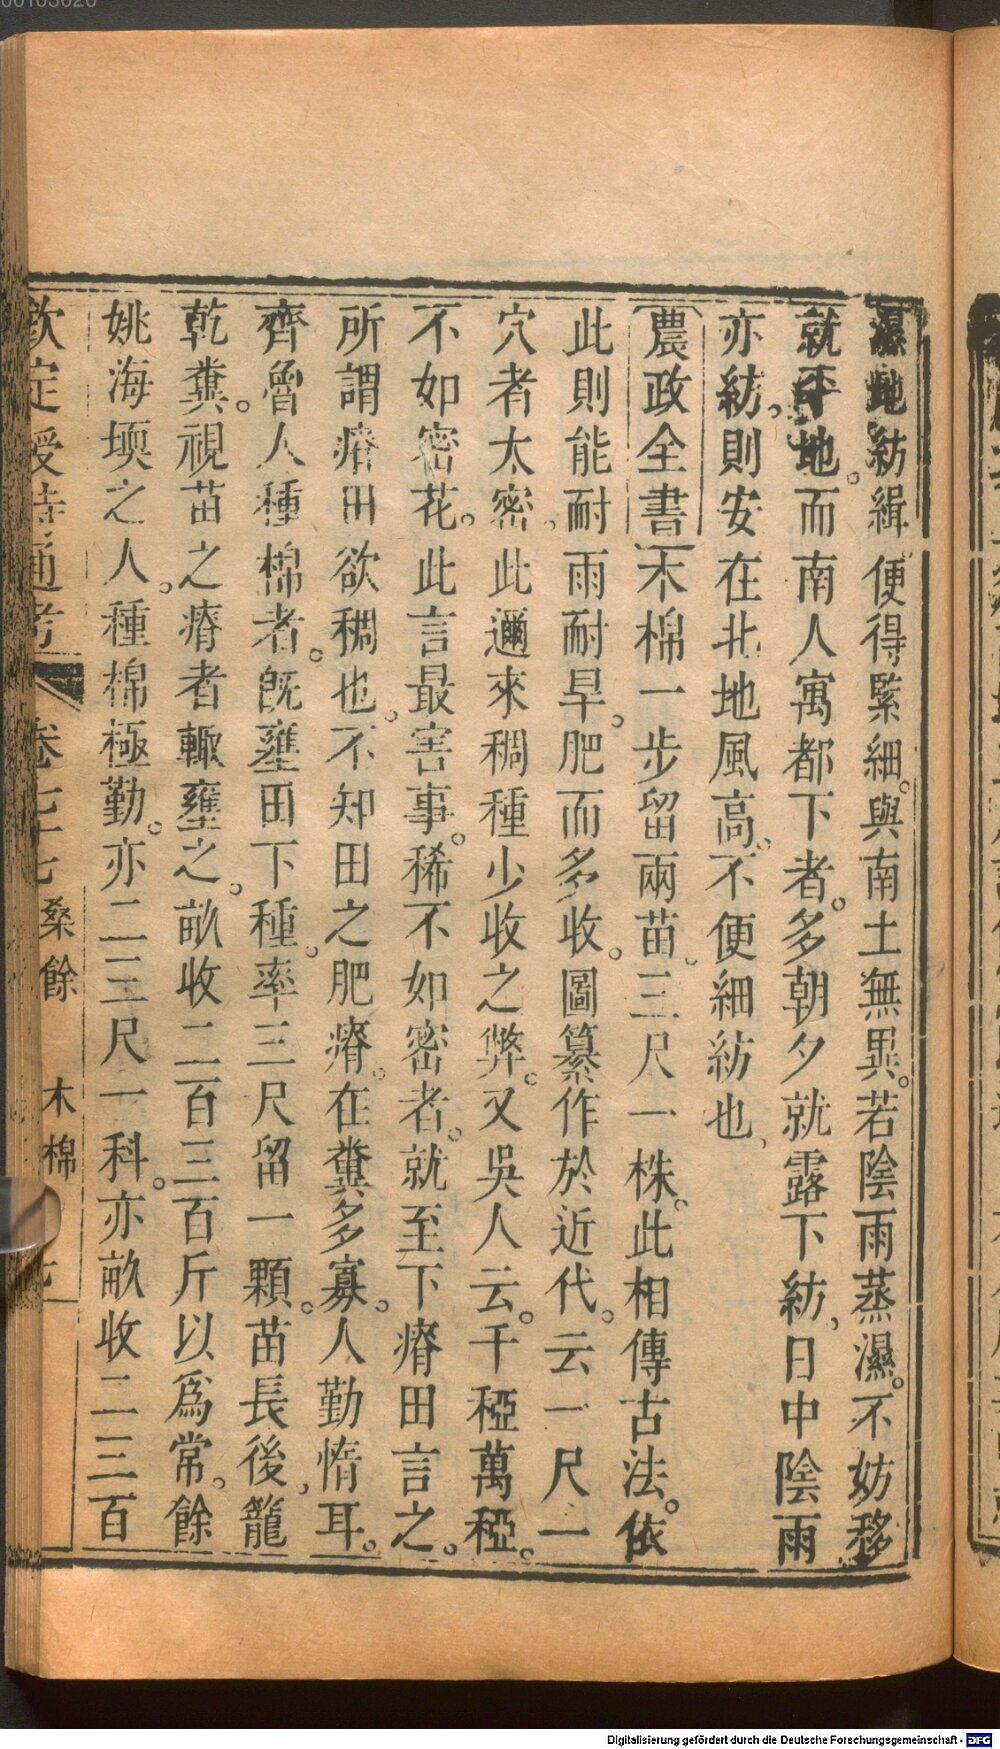 濕地紡緝便得緊細。與南土無異。若陰雨蒸濕。不妨移
就平地。而南人寓都下者。多朝夕就露下紡、日中陰雨
亦紡。則安在北地風高、不便細紡也、
農政全書 木棉一步留兩苗、三尺一株。此相傳古法。依
此則能耐雨耐旱。肥而多收。圖纂作於近代。云一尺一
穴者太密、此邇來稠種少收之弊。又吳人云。千稏萬稏。
不如密花。此言最害事。稀不如密者。就至下瘠田言之。
所謂瘠田欲稠也。不知田之肥瘠。在糞多寡。人勤惰耳。
齊魯人種棉者。旣壅田下種。率三尺留一顆。苗長後、籠
乾糞。視苗之瘠者輙壅之。畝收二百三百斤以爲常。餘
姚海堧之人。種棉極勤。亦二三尺一科。亦畝收二三百
欽定授時通考 卷七十七 桑餘 木棉 七
Digitalisierung gefördert durch die Deutsche Forschungsgemeinschaft - DFG